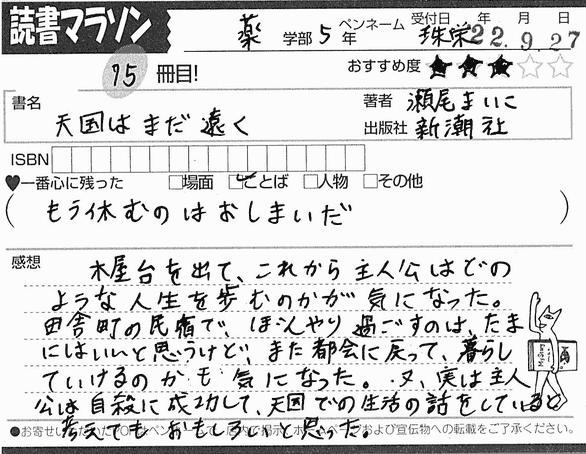 読書マラソン
薬 学部 5 年 ペンネーム 珠栄 受付日 年 月 日 22.9.27
75 冊目! おすすめ度 ★★★☆☆
書名 天国はまだ遠く
著者 瀬尾まいこ
出版社 新潮社
ISBN
♥一番心に残った □場面 ☑ことば □人物 □その他
(もう休むのはおしまいだ)
感想
木屋台を出て、これから主人公はどの
ような人生を歩むのかが気になった。
田舎町の民宿で、ぼんやり過ごすのは、たま
にはいいと思うけど、また都会に戻って、暮らし
ていけるのかも気になった。又、実は主人
公は自殺に成功して、天国での生活の話をしていると
考えてもおもしろいと思った。